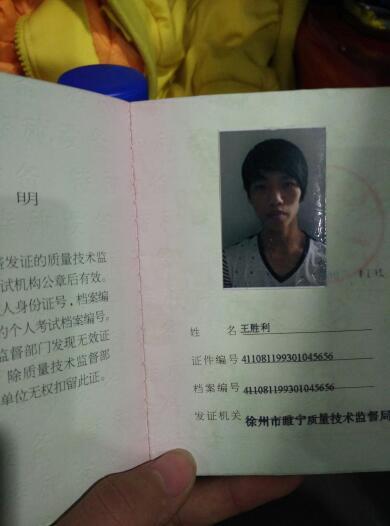 明
发证的质量技术监
试机构公章后有效。
人身份证号,档案编
的个人考试档案编号。
监督部门发现无效证
除质量技术监督部
单位无权扣留此证。
姓 名 王胜利
证件编号 411081199301045656
档案编号 411081199301045656
发证机关 徐州市睢宁质量技术监督局